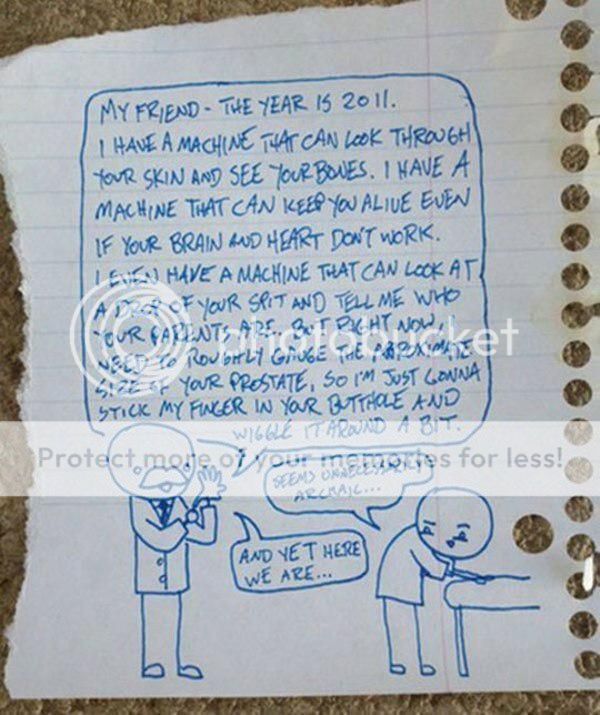 MY FRIEND - THE YEAR IS 2011.
I HAVE A MACHINE THAT CAN LOOK THROUGH
YOUR SKIN AND SEE YOUR BONES. I HAVE A
MACHINE THAT CAN KEEP YOU ALIVE EVEN
IF YOUR BRAIN AND HEART DON'T WORK.
I EVEN HAVE A MACHINE THAT CAN LOOK AT
A DROP OF YOUR SPIT AND TELL ME WHO
YOUR PARENTS ARE... BUT RIGHT NOW, I
NEED TO ROUGHLY GAUGE THE APPROXIMATE
SIZE OF YOUR PROSTATE, SO I'M JUST GONNA
STICK MY FINGER IN YOUR BUTTHOLE AND
WIGGLE IT AROUND A BIT.
photobucket
Protect more of your memories for less!
SEEMS UNNECESSARILY
ARCHAIC...
AND YET HERE
WE ARE...